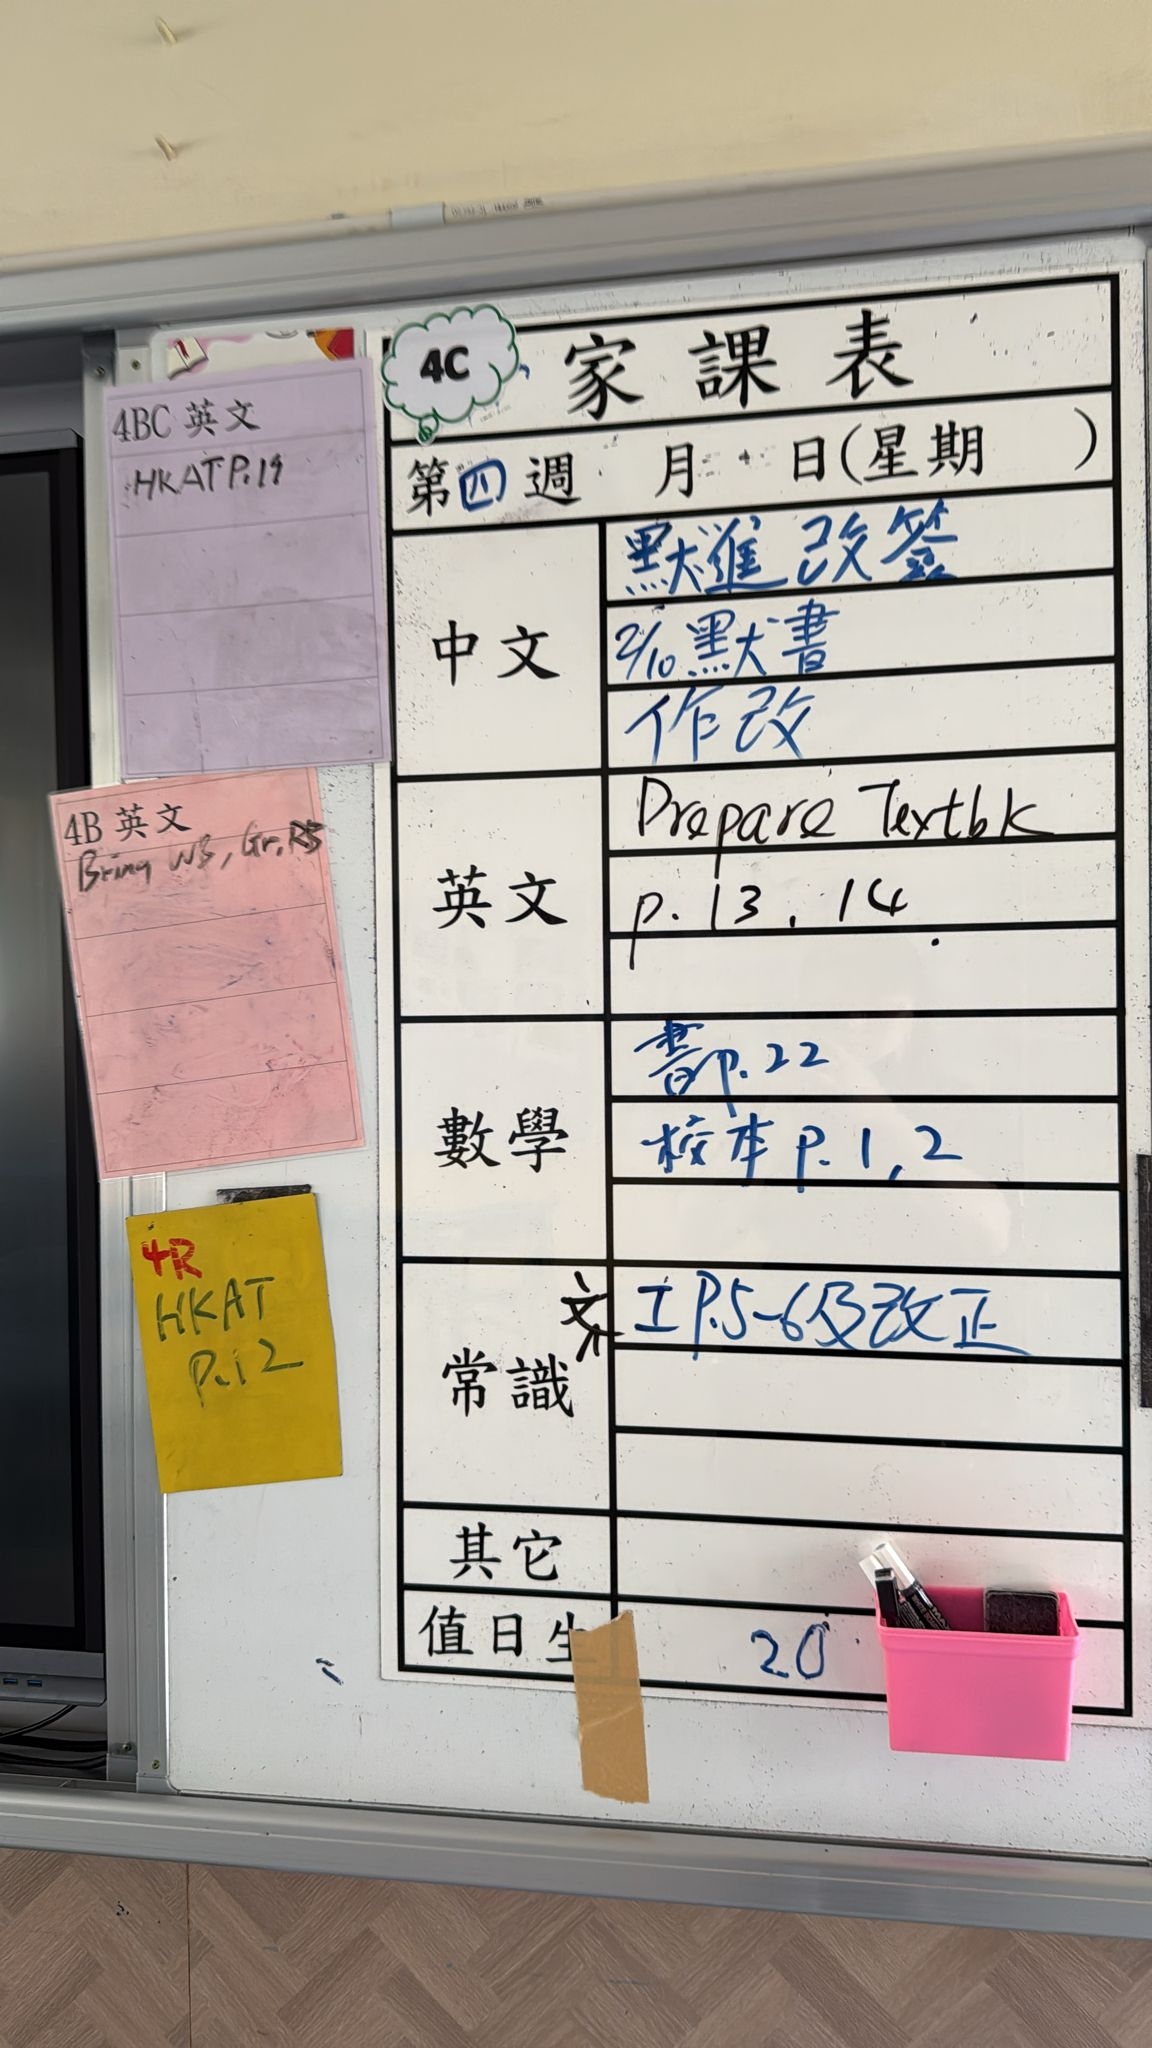 4C
家課表
第四週 月 日(星期 )
中文
默進改簽
2/10 默書
作改
英文
Prepare Textbk
p. 13, 14
數學
書p.22
校本 p. 1, 2
常識
工 P.5-6及改正
其它
值日生
20
4BC 英文
HKAT P.19
4B 英文
Bring WB, Gr,
4R
HKAT
P.12